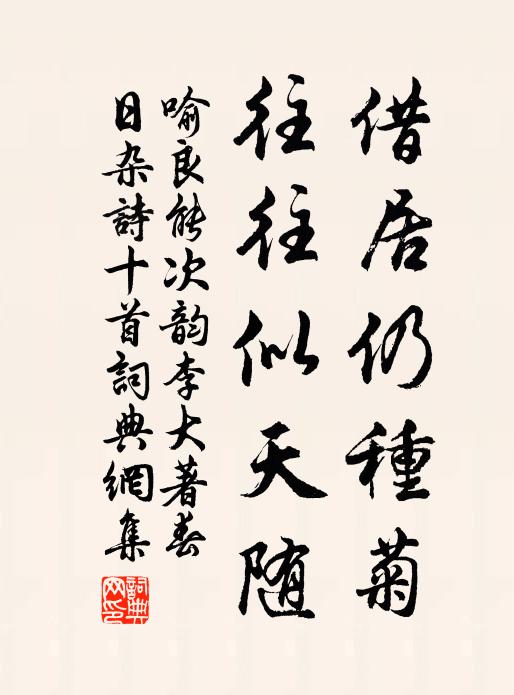 借居仍種菊
往往似天随
喻良能次韵李大著春
日杂詩十首詞典網集
詞典网印